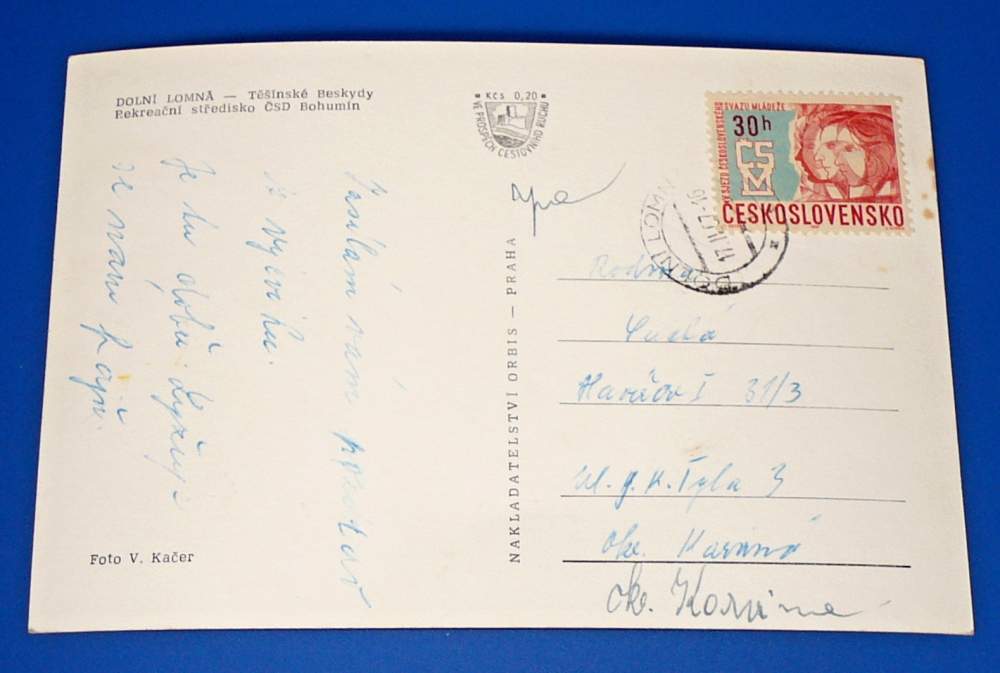 DOLNÍ LOMNÁ — Těšínské Beskydy
Rekreační středisko ČSD Bohumín
Kčs 0,20
VE PROSPĚCH CESTOVNÍHO RUCHU
SJEZD ČESKOSLOVENSKÉHO SVAZU MLÁDEŽE
30h
ČSM
ČESKOSLOVENSKO
DOLNÍ LOMNÁ
Zasílám vám pozdrav
z výcviku.
Je tu dobře. Lyžuji
se nám fajn.
NAKLADATELSTVÍ ORBIS — PRAHA
Rodina
Havířov I 31/3
ul. J. K. Tyla 3
okr. Karviná
okr. Karviná
Foto V. Kačer